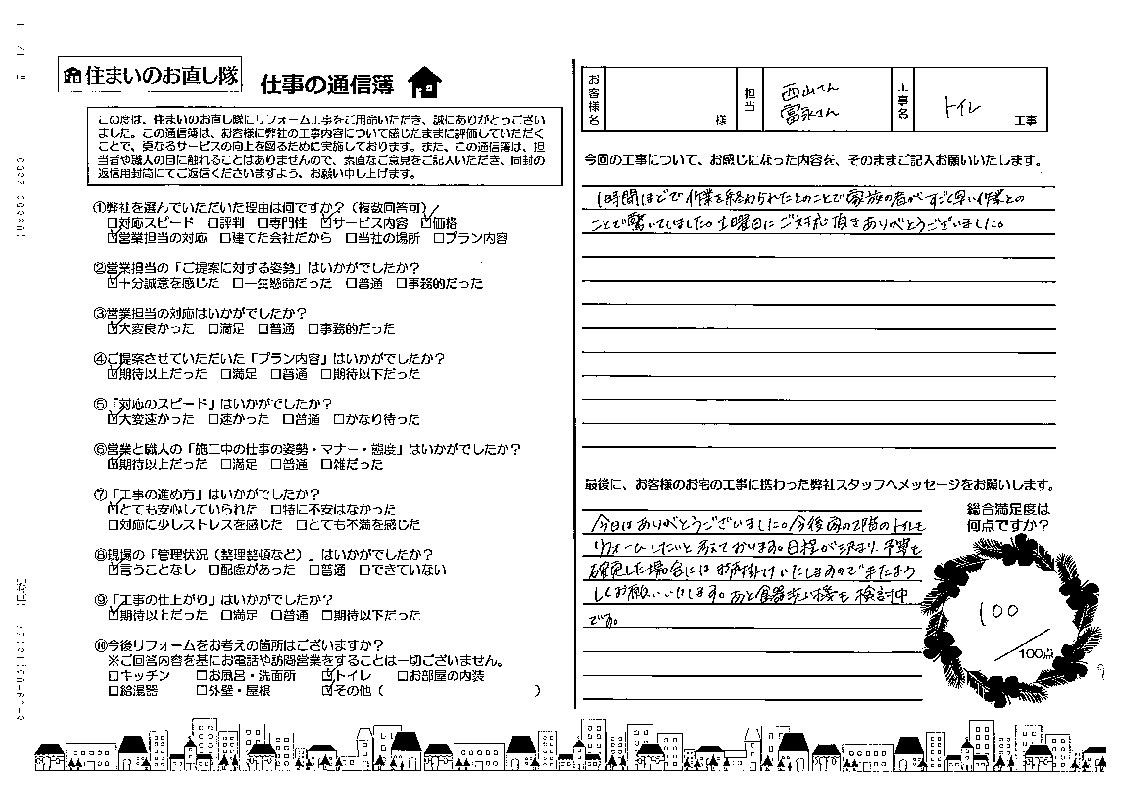 住まいのお直し隊 仕事の通信簿
この度は、住まいのお直し隊にリフォーム工事をご用命いただき、誠にありがとうござい
ました。この通信簿は、お客様に弊社の工事内容について感じたままに評価していただく
ことで、更なるサービスの向上を図るために実施しております。また、この通信簿は、担
当者や職人の目に触れることはありませんので、素直なご意見をご記入いただき、同封の
返信用封筒にてご返信くださいますよう、お願い申し上げます。
①弊社を選んでいただいた理由は何ですか?(複数回答可)
□対応スピード □評判 □専門性 ☑サービス内容 ☑価格
☑営業担当の対応 □建てた会社だから □当社の場所 □プラン内容
②営業担当の「ご提案に対する姿勢」はいかがでしたか?
☑十分誠意を感じた □一生懸命だった □普通 □事務的だった
③営業担当の対応はいかがでしたか?
☑大変良かった □満足 □普通 □事務的だった
④ご提案させていただいた「プラン内容」はいかがでしたか?
☑期待以上だった □満足 □普通 □期待以下だった
⑤「対応のスピード」はいかがでしたか?
☑大変速かった □速かった □普通 □かなり待った
⑥営業と職人の「施工中の仕事の姿勢・マナー・態度」はいかがでしたか?
☑期待以上だった □満足 □普通 □雑だった
⑦「工事の進め方」はいかがでしたか?
☑とても安心していられた □特に不安はなかった
□対応に少しストレスを感じた □とても不満を感じた
⑧現場の「管理状況(整理整頓など)」はいかがでしたか?
☑言うことなし □配慮があった □普通 □できていない
⑨「工事の仕上がり」はいかがでしたか?
☑期待以上だった □満足 □普通 □期待以下だった
⑩今後リフォームをお考えの箇所はございますか?
※ご回答内容を基にお電話や訪問営業をすることは一切ございません。
□キッチン □お風呂・洗面所 ☑トイレ □お部屋の内装
□給湯器 □外壁・屋根 ☑その他( )
お客様名 様 担当 西山さん 富永さん 工事名 トイレ 工事
今回の工事について、お感じになった内容を、そのままご記入お願いいたします。
1時間ほどで作業を終わられたとのことで家族の者がすごく早い作業との
ことで驚いていました。土曜日にご対応頂きありがとうございました。
最後に、お客様のお宅の工事に携わった弊社スタッフへメッセージをお願いします。
今日はありがとうございました。今後再の2階のトイレも
リフォームしたいと考えております。日程が決まり、予算も
確定した場合にはお声掛けいたしますのでまたよろ
しくお願いいたします。あと食器洗い機も検討中
です。
総合満足度は
何点ですか?
100
/100点